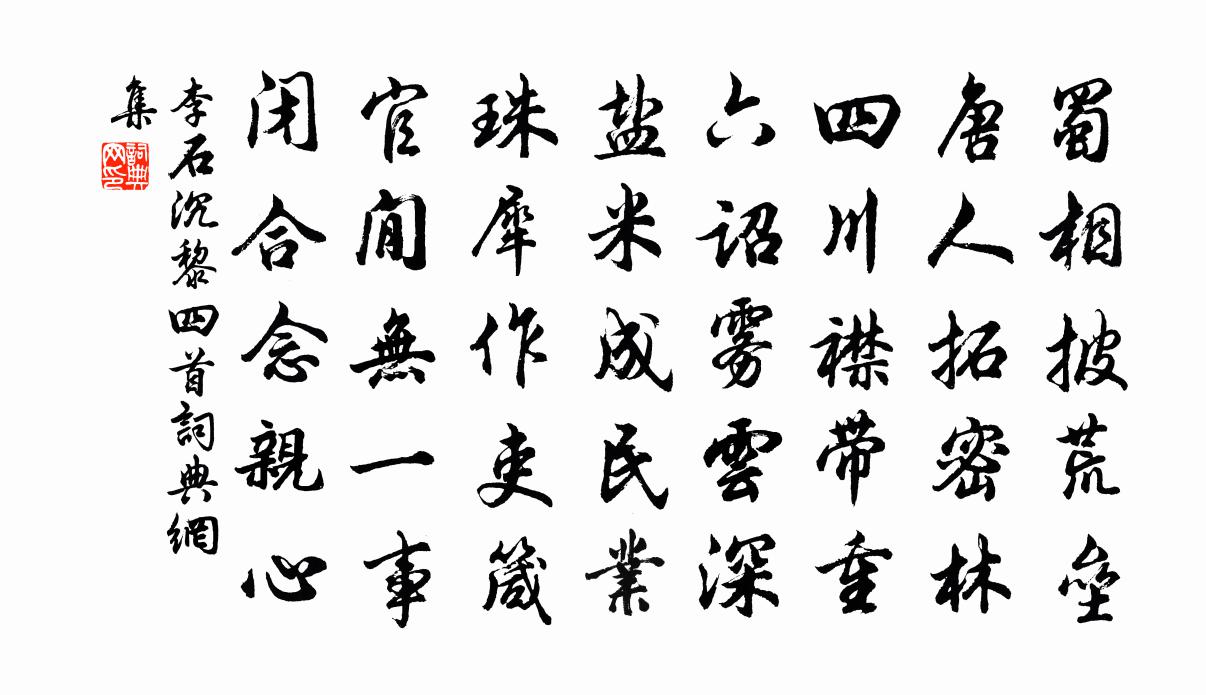 蜀相披荒壘
唐人拓密林
四川襟带重
六诏雾雲深
盐米成民業
珠犀作吏箴
官閒無一事
闭合念親心
李石沉黎四首詞典網
集
詞典網印